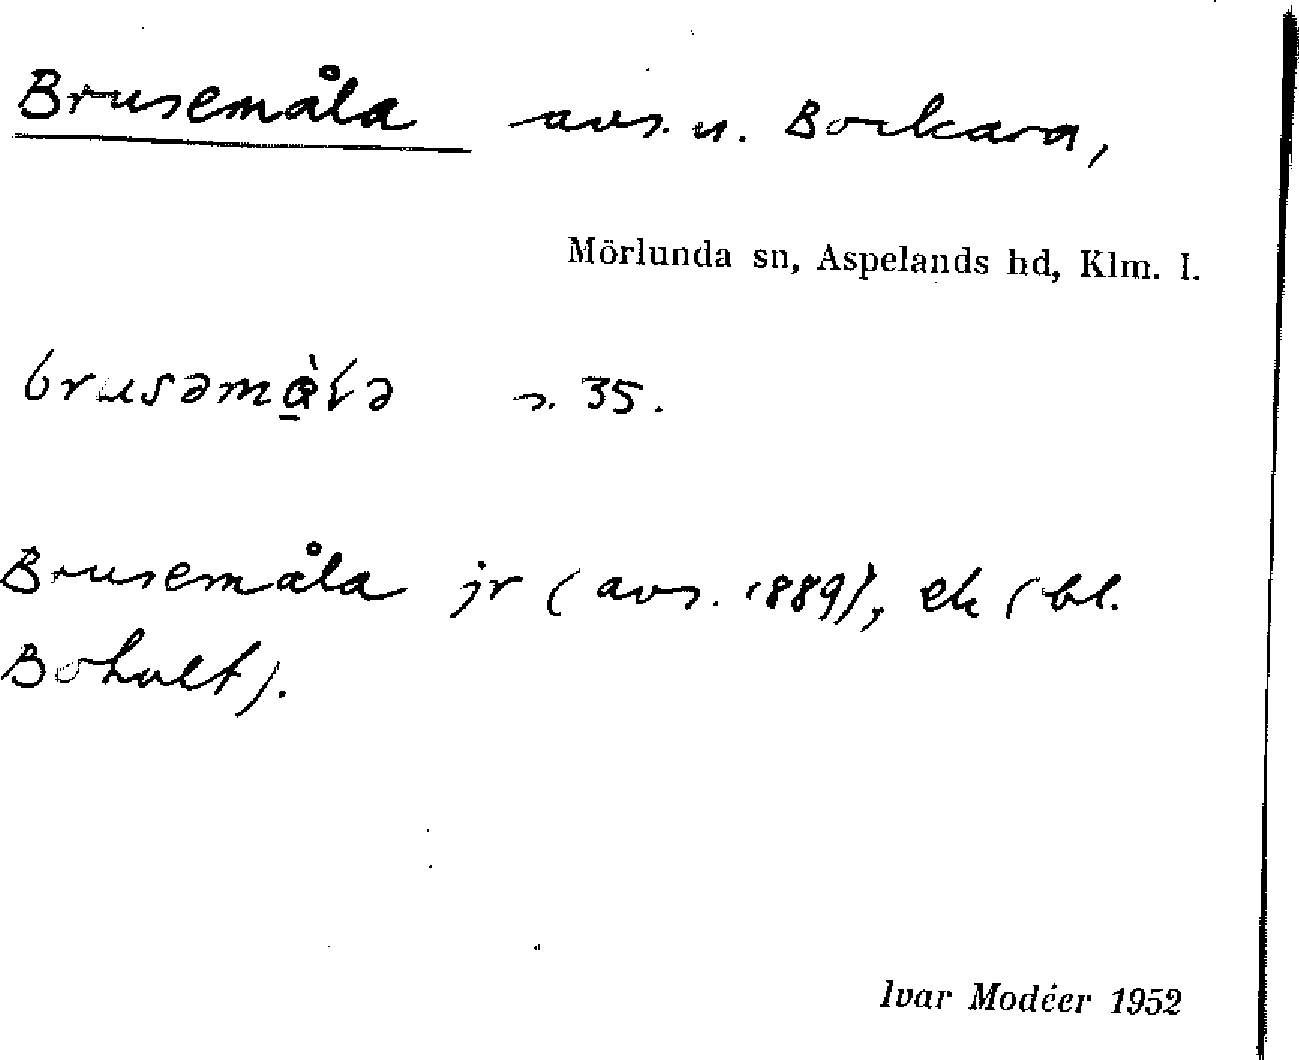 Brusemåla avs. u. Bockara,
Mörlunda sn, Aspelands hd, Klm. l.
s. 35.
Brusemåla jr (avs. 1889), ek (bl.
Boholt).
Ivar Modéer 1952